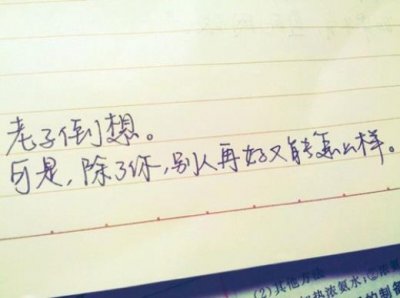 老子倒想。
可是，除了你，别人再好又能怎么样。
(2)其他方法
热浓氨水，②浓氨
的制备